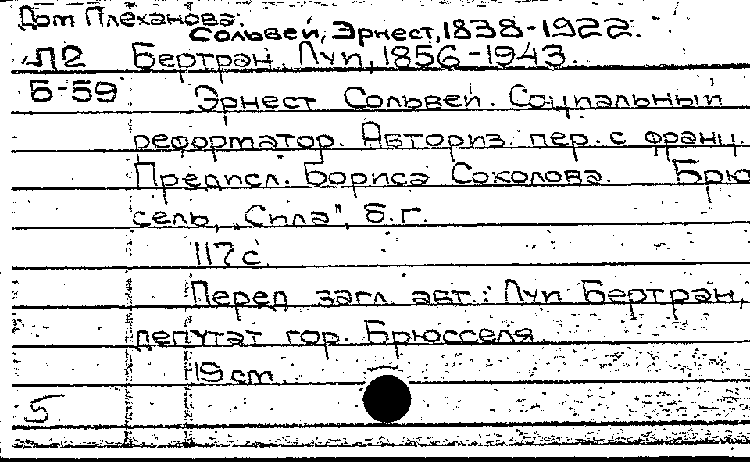 Дом Плеханова.
Сольвей, Эрнест, 1838-1922.
Л2 Бертран, Луи, 1856-1943.
Б-59 Эрнест Сольвей. Социальный
реформатор. Авториз. пер. с франц.
Предисл. Бориса Соколова. Брю
сель, „Сила", б.г.
117 с.
Перед загл. авт.: Луи Бертран,
депутат гор. Брюсселя
19 cm.
5